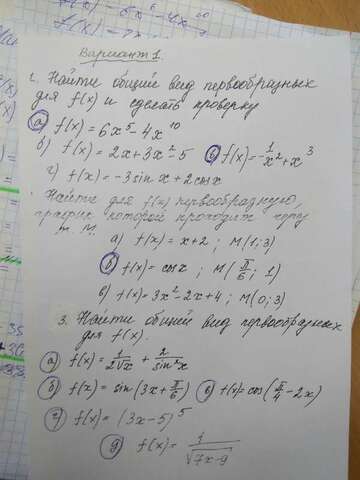 Вариант 1.
1. Найти общий вид первообразных
для f(x) и сделать проверку
а) f(x) = 6x⁵ - 4x¹⁰
б) f(x) = 2x + 3x² - 5 в) f(x) = -1/x² + x³
г) f(x) = -3 sin x + 2 cos x
Найти для f(x) первообразную,
график которой проходит через
т. М.
а) f(x) = x + 2 ; M(1; 3)
б) f(x) = cos x ; M(π/6 ; 1)
в) f(x) = 3x² - 2x + 4 ; M(0; 3)
3. Найти общий вид первообразных
для f(x).
а) f(x) = 1/(2√x) + 2/sin²x
б) f(x) = sin(3x + π/6) в) f(x) = cos(π/4 - 2x)
г) f(x) = (3x - 5)⁵
д) f(x) = 1/√(7x - 9)